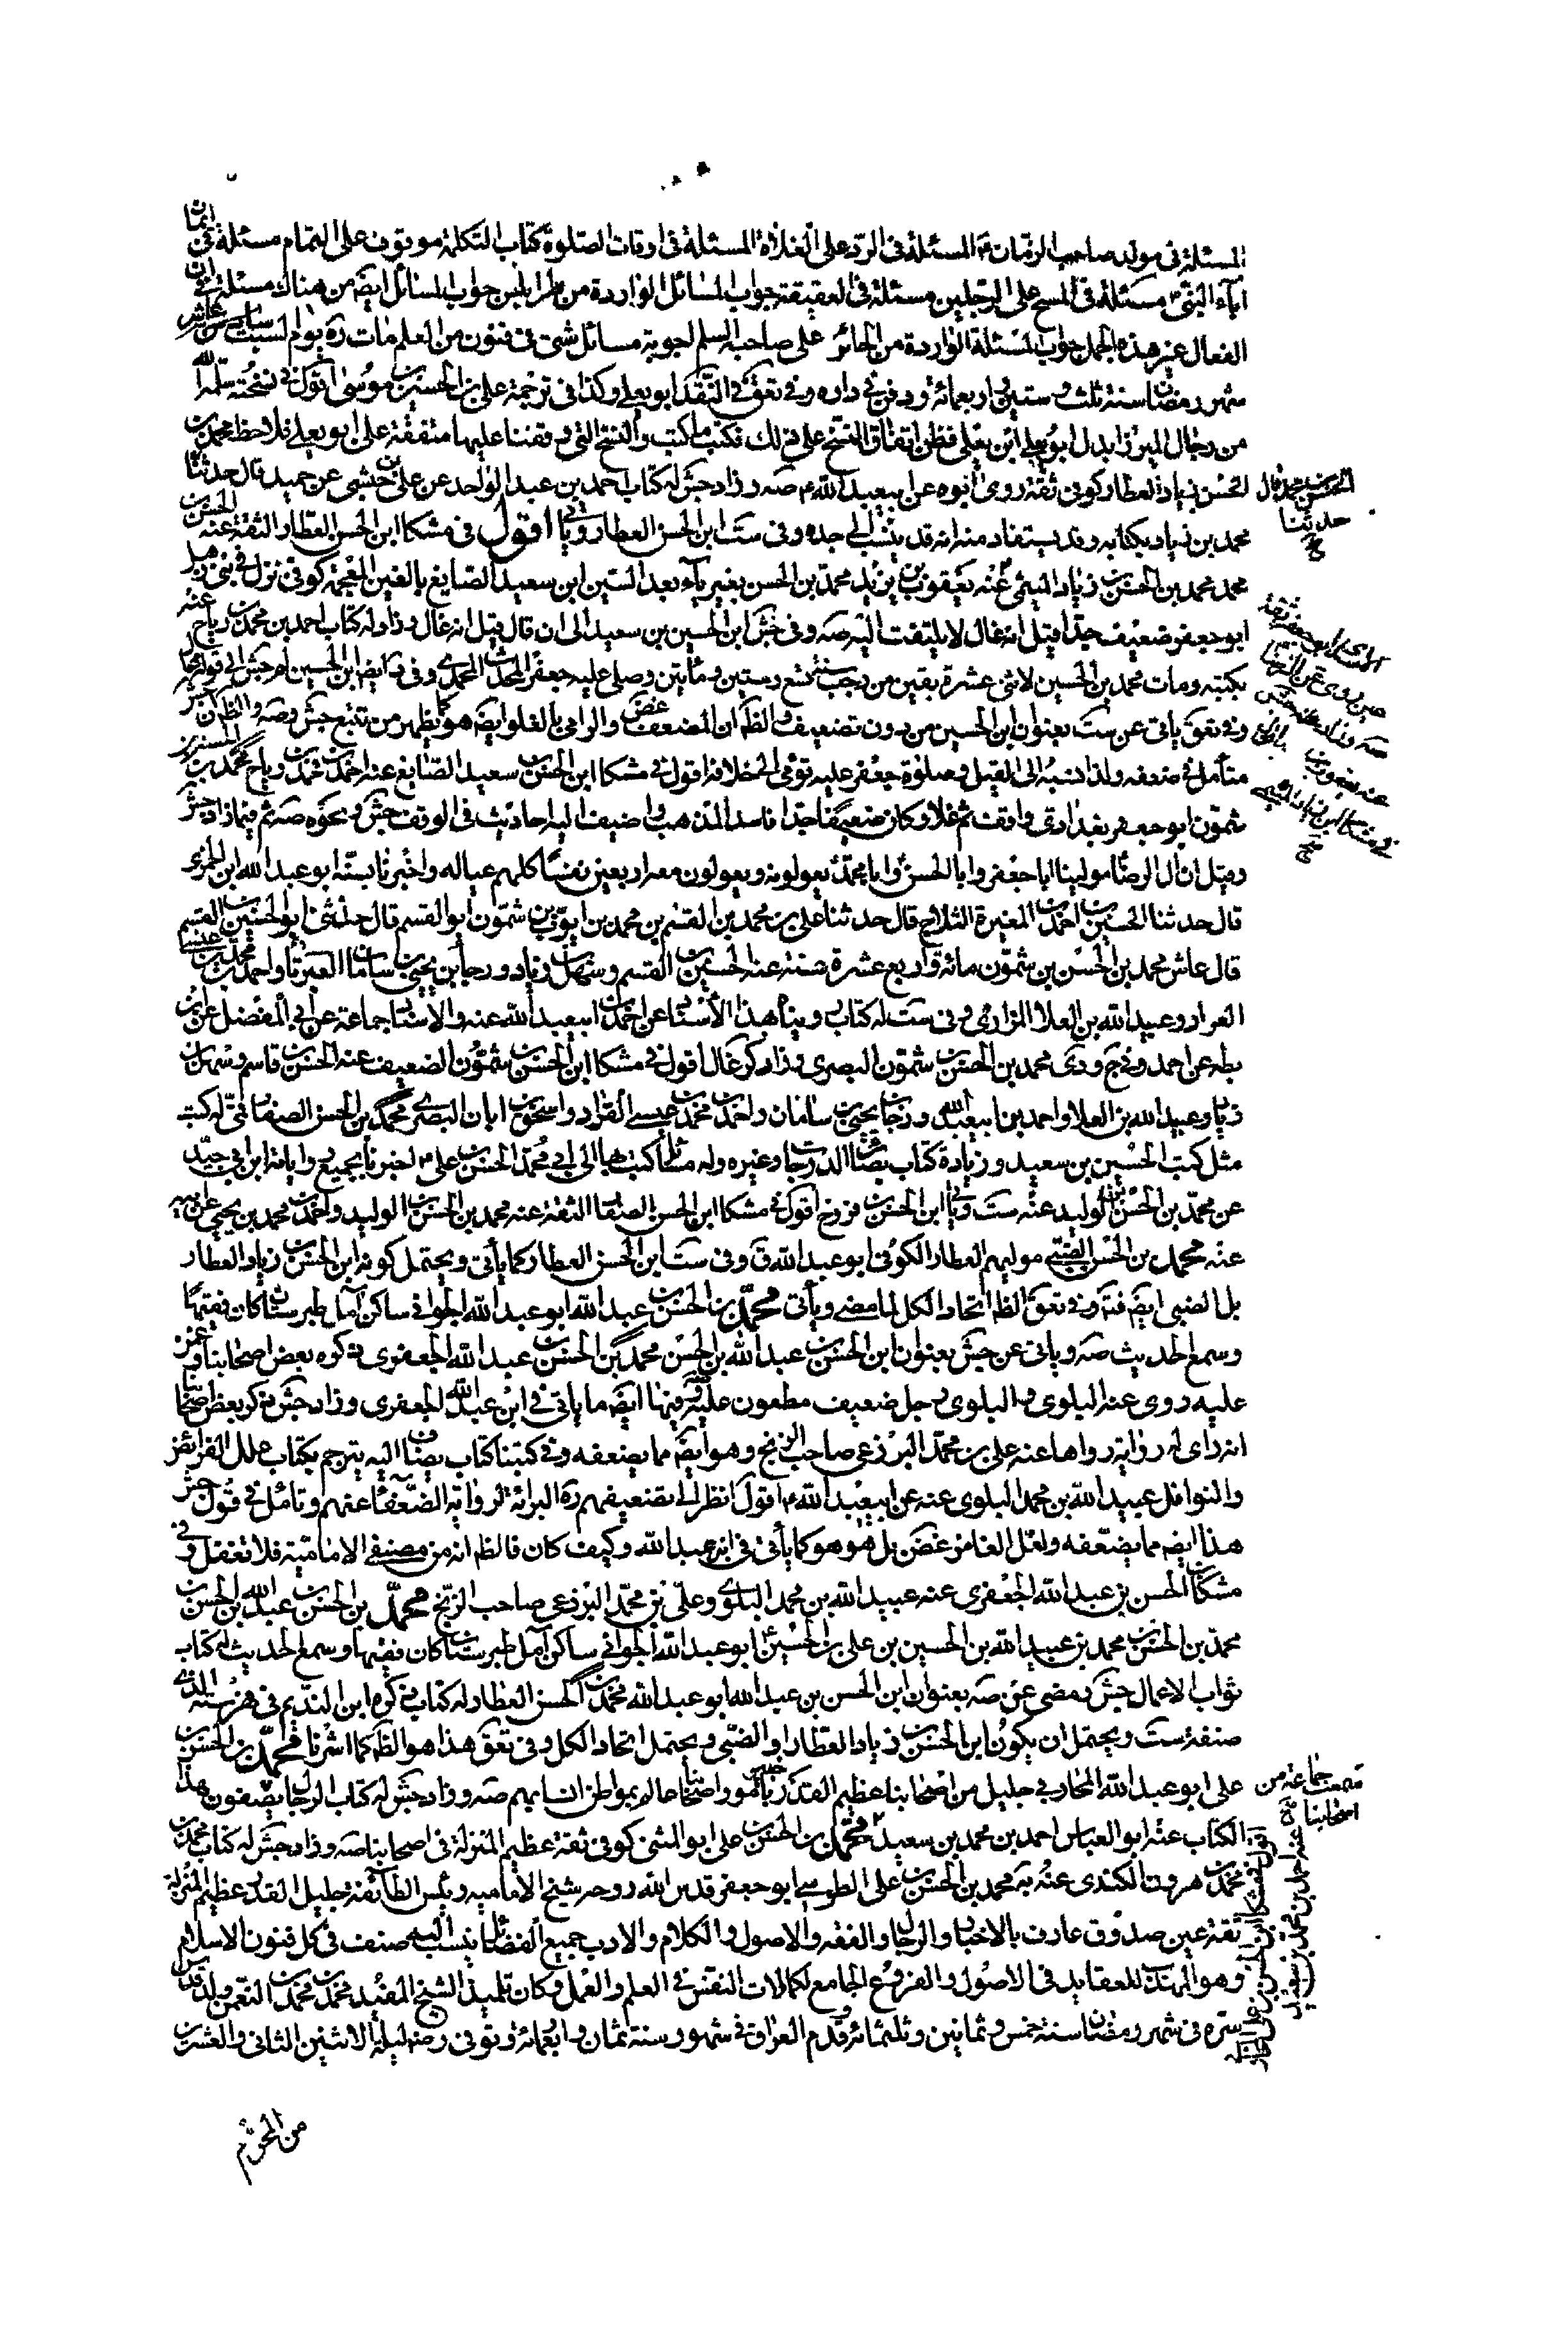 المسئلة فى مولد صاحب الزمان ع المسئلة فى الرد على الغلاة المسئلة فى اوقات الصلوة كتاب التكلمة موقوف على التمام مسئلة فى ايمان
اباء النبى ص مسئلة فى المسح على الرجلين مسئلة فى العقيقة جواب المسائل الواردة من طرابلس جواب المسائل ايضا من هناك مسئلة فى ان
الفعال غير هذه الجمل جواب المسئلة الواردة من الحائر على صاحبه السلم اجوبة مسائل شتى فى فنون من العلم مات ره يوم السبت سادس عاشر
شهر رمضان سنة ثلث و ستين و اربعمائة و دفن فى داره و فى تعق فى النقد ابو يعلى و كذا فى ترجمة على بن الحسين بن موسى اقول فى نسخته سلمه الله
من رجال الميرزا بدل ابو يعلى ابن يعلى فظن اتفاق النسخ على ذلك فكتب ما كتب و النسخ التى وقفنا عليها متفقة على ابو يعلى فلاحظ محمد بن
الحسن بن زياد العطار كوفى ثقة روى ابوه عن ابيعبد الله ع صه و زاد جش له كتاب احمد بن عبد الواحد عن على بن حبشى عن حميد قال حدثنا
الحسن بن محمد قال حدثنا
محمد بن زياد بكتابه و قد يستفاد منه انه قد ينسب الى جده و فى ست ابن الحسن العطار و ياتى اقول فى مشكا ابن الحسن العطار الثقة عنه الحسن بن
محمد محمد بن الحسن بن زياد الميثمى عنه يعقوب بن يزيد محمد بن الحسن بغير ياء بعد السين ابن سعيد الصايغ بالغين المعجمة كوفى نزل فى بنى ذهل
ابو جعفر ضعيف جدا قيل انه غال لا يلتفت اليه صه و فى جش ابن الحسين بن سعيد الى ان قال قيل انه غال و زاد له كتاب احمد بن محمد بن رباح عنه
بكتبه و مات محمد بن الحسين لاثنى عشرة بقين من رجب سنة تسع و ستين و مائتين و صلى عليه جعفر المحدث المحمدى
و فى تعق ياتى عن ست بعنوان ابن الحسين من دون تضعيف و الظ ان المضعف غض و الرامى بالغلو ايضا هو كما يظهر من تتبع جش و صه
متأمل فى ضعفه و لذا نسبه الى القيل و صلوة جعفر عليه تومى الى خلافه اقول فى مشكا ابن الحسن بن سعيد الصايغ عنه احمد بن محمد بن رباح محمد بن الحسن بن
شمون ابو جعفر بغدادى واقف ثم غلا و كان ضعيفا جدا فاسد المذهب و اضيف اليه احاديث فى الوقف جش و نحوه صه ثم فيما زاد جش
و قيل ان ال الرضا مولينا ابا جعفر و ابا الحسن و ابا محمد يعولونه و يعولون معه اربعين نفسا كلهم عياله و اخبرنا بسنه ابو عبد الله ابن الخمرى
قال حدثنا الحسين بن احمد بن المغيرة الثلاج قال حدثنا على بن محمد بن القسم بن محمد بن ايوب بن شمون ابو القسم قال حدثنى ابو الحسين بن القسم
قال عاش محمد بن الحسن بن شمون مائة و اربع عشرة سنة عنه الحسين بن القسم و سهل بن زياد و رجا بن يحيى بن سامان العبرتائى و احمد بن محمد بن عيسى
العراد و عبيد الله بن العلا المذارى و فى ست له كتاب روينا بهذا الاسناد عن احمد بن ابيعبد الله عنه و الاسناد جماعة عن ابى المفضل عن ابن
بطه عن احمد و فى ج و دى محمد بن الحسن بن شمون البصرى و زاد كر غال اقول فى مشكا ابن الحسن بن شمون الضعيف عنه الحسن بن قاسم و سهل بن
زياد و عبيد الله بن العلا و احمد بن ابيعبد الله و رجا بن يحيى بن سامان و احمد بن محمد بن عيسى القراد و اسحق بن ابان البصرى محمد بن الحسن الصفار قمى له كتب
مثل كتب الحسين بن سعيد و زيادة كتاب بصائر الدرجات و غيره و له مسائل كتب بها الى ابى محمد الحسن بن على ع اخبرنا بجميع رواياته ابن ابى جيد
عن محمد بن الحسن بن الوليد عنه ست و ياتى ابن الحسن بن فروخ اقول فى مشكا ابن الحسن الصفار الثقة عنه محمد بن الحسن بن الوليد و احمد بن محمد بن يحيى عن ابيه
عنه محمد بن الحسن الضبى موليهم العطار الكوفى ابو عبد الله ق و فى ست ابن الحسن العطار كما ياتى و يحتمل كونه ابن الحسن بن زياد العطار
بل الضبى ايضا فتدبر و فى تعق الظ اتحاد الكل لما مضى و ياتى محمد بن الحسن بن عبد الله ابو عبد الله الجوانى ساكن امل طبرستان كان فقيها
و سمع الحديث صه و ياتى عن جش بعنوان ابن الحسن بن عبد الله بن الحسن محمد بن الحسن بن عبد الله الجعفرى ذكره بعض اصحابنا و غمز
عليه روى عنه البلوى و البلوى رجل ضعيف مطعون عليه صه و فيها ايضا ما ياتى فى ابن عبد الله الجعفرى و زاد جش ذكر بعض اصحابنا
انه راى له رواية رواها عنه على بن محمد البرذعى صاحب الزنج و هو ايضا مما يضعفه و فى كتبنا كتاب يضاف اليه يترجم بكتاب علل الفرائض
و النوافل عبيد الله بن محمد البلوى عنه عن ابيعبد الله ع اقول انظر الى تضعيفهم ره البرائة لرواية الضعفاء عنهم و تامل فى قول جش
هذا ايضا مما يضعفه و لعل الغامز غض بل هو هو كما ياتى فى ابن عبد الله و كيف كان فالظ انه من مصنفى الامامية فلا تغفل و فى
مشكا ابن الحسن بن عبد الله الجعفرى عنه عبيد الله بن محمد البلوى و على بن محمد البرذعى صاحب الزنج محمد بن الحسن بن عبد الله بن الحسن
محمد بن الحسن بن محمد بن عبيد الله بن الحسين بن على بن الحسين ع ابو عبد الله الجوانى ساكن امل طبرستان كان فقيها و سمع الحديث له كتاب
ثواب الاعمال جش و مضى عن صه بعنوان ابن الحسن بن عبد الله ابو عبد الله محمد بن الحسن العطار له كتاب ذكره ابن النديم فى فهرسته الذى
صنفه ست و يحتمل ان يكون ابن الحسن بن زياد العطار او الضبى و يحتمل اتحاد الكل و فى تعق هذا هو الظ كما اشرنا محمد بن الحسن بن
على ابو عبد الله المحاربى جليل من اصحابنا عظيم القدر خبير بامور اصحابنا عالم بمواطن انسابهم صه و زاد جش له كتاب الرجال
الكتاب عنه ابو العباس احمد بن محمد بن سعيد محمد بن الحسن بن على ابو المثنى كوفى ثقة عظيم المنزلة فى اصحابنا صه و زاد جش له كتاب محمد بن
محمد بن هرون الكندى عنه به محمد بن الحسن بن على الطوسى ابو جعفر قدس الله روحه شيخ الامامية رئيس الطائفة جليل القدر عظيم المنزلة
ثقة عين صدوق عارف بالاخبار و الرجال و الفقه و الاصول و الكلام و الادب جميع الفضائل ينسب اليه صنف فى كل فنون الاسلام
و هو المهذب للعقايد فى الاصول و الفروع الجامع لكمالات النفس فى العلم و العمل و كان تلميذ الشيخ المفيد محمد بن محمد بن النعمن ولد قدس
سره فى شهر رمضان سنة خمس و ثمانين و ثلثمائة و قدم العراق فى شهور سنة ثمان و اربعمائة و توفى رضه ليلة الاثنين الثانى و العشرين
من المحرم